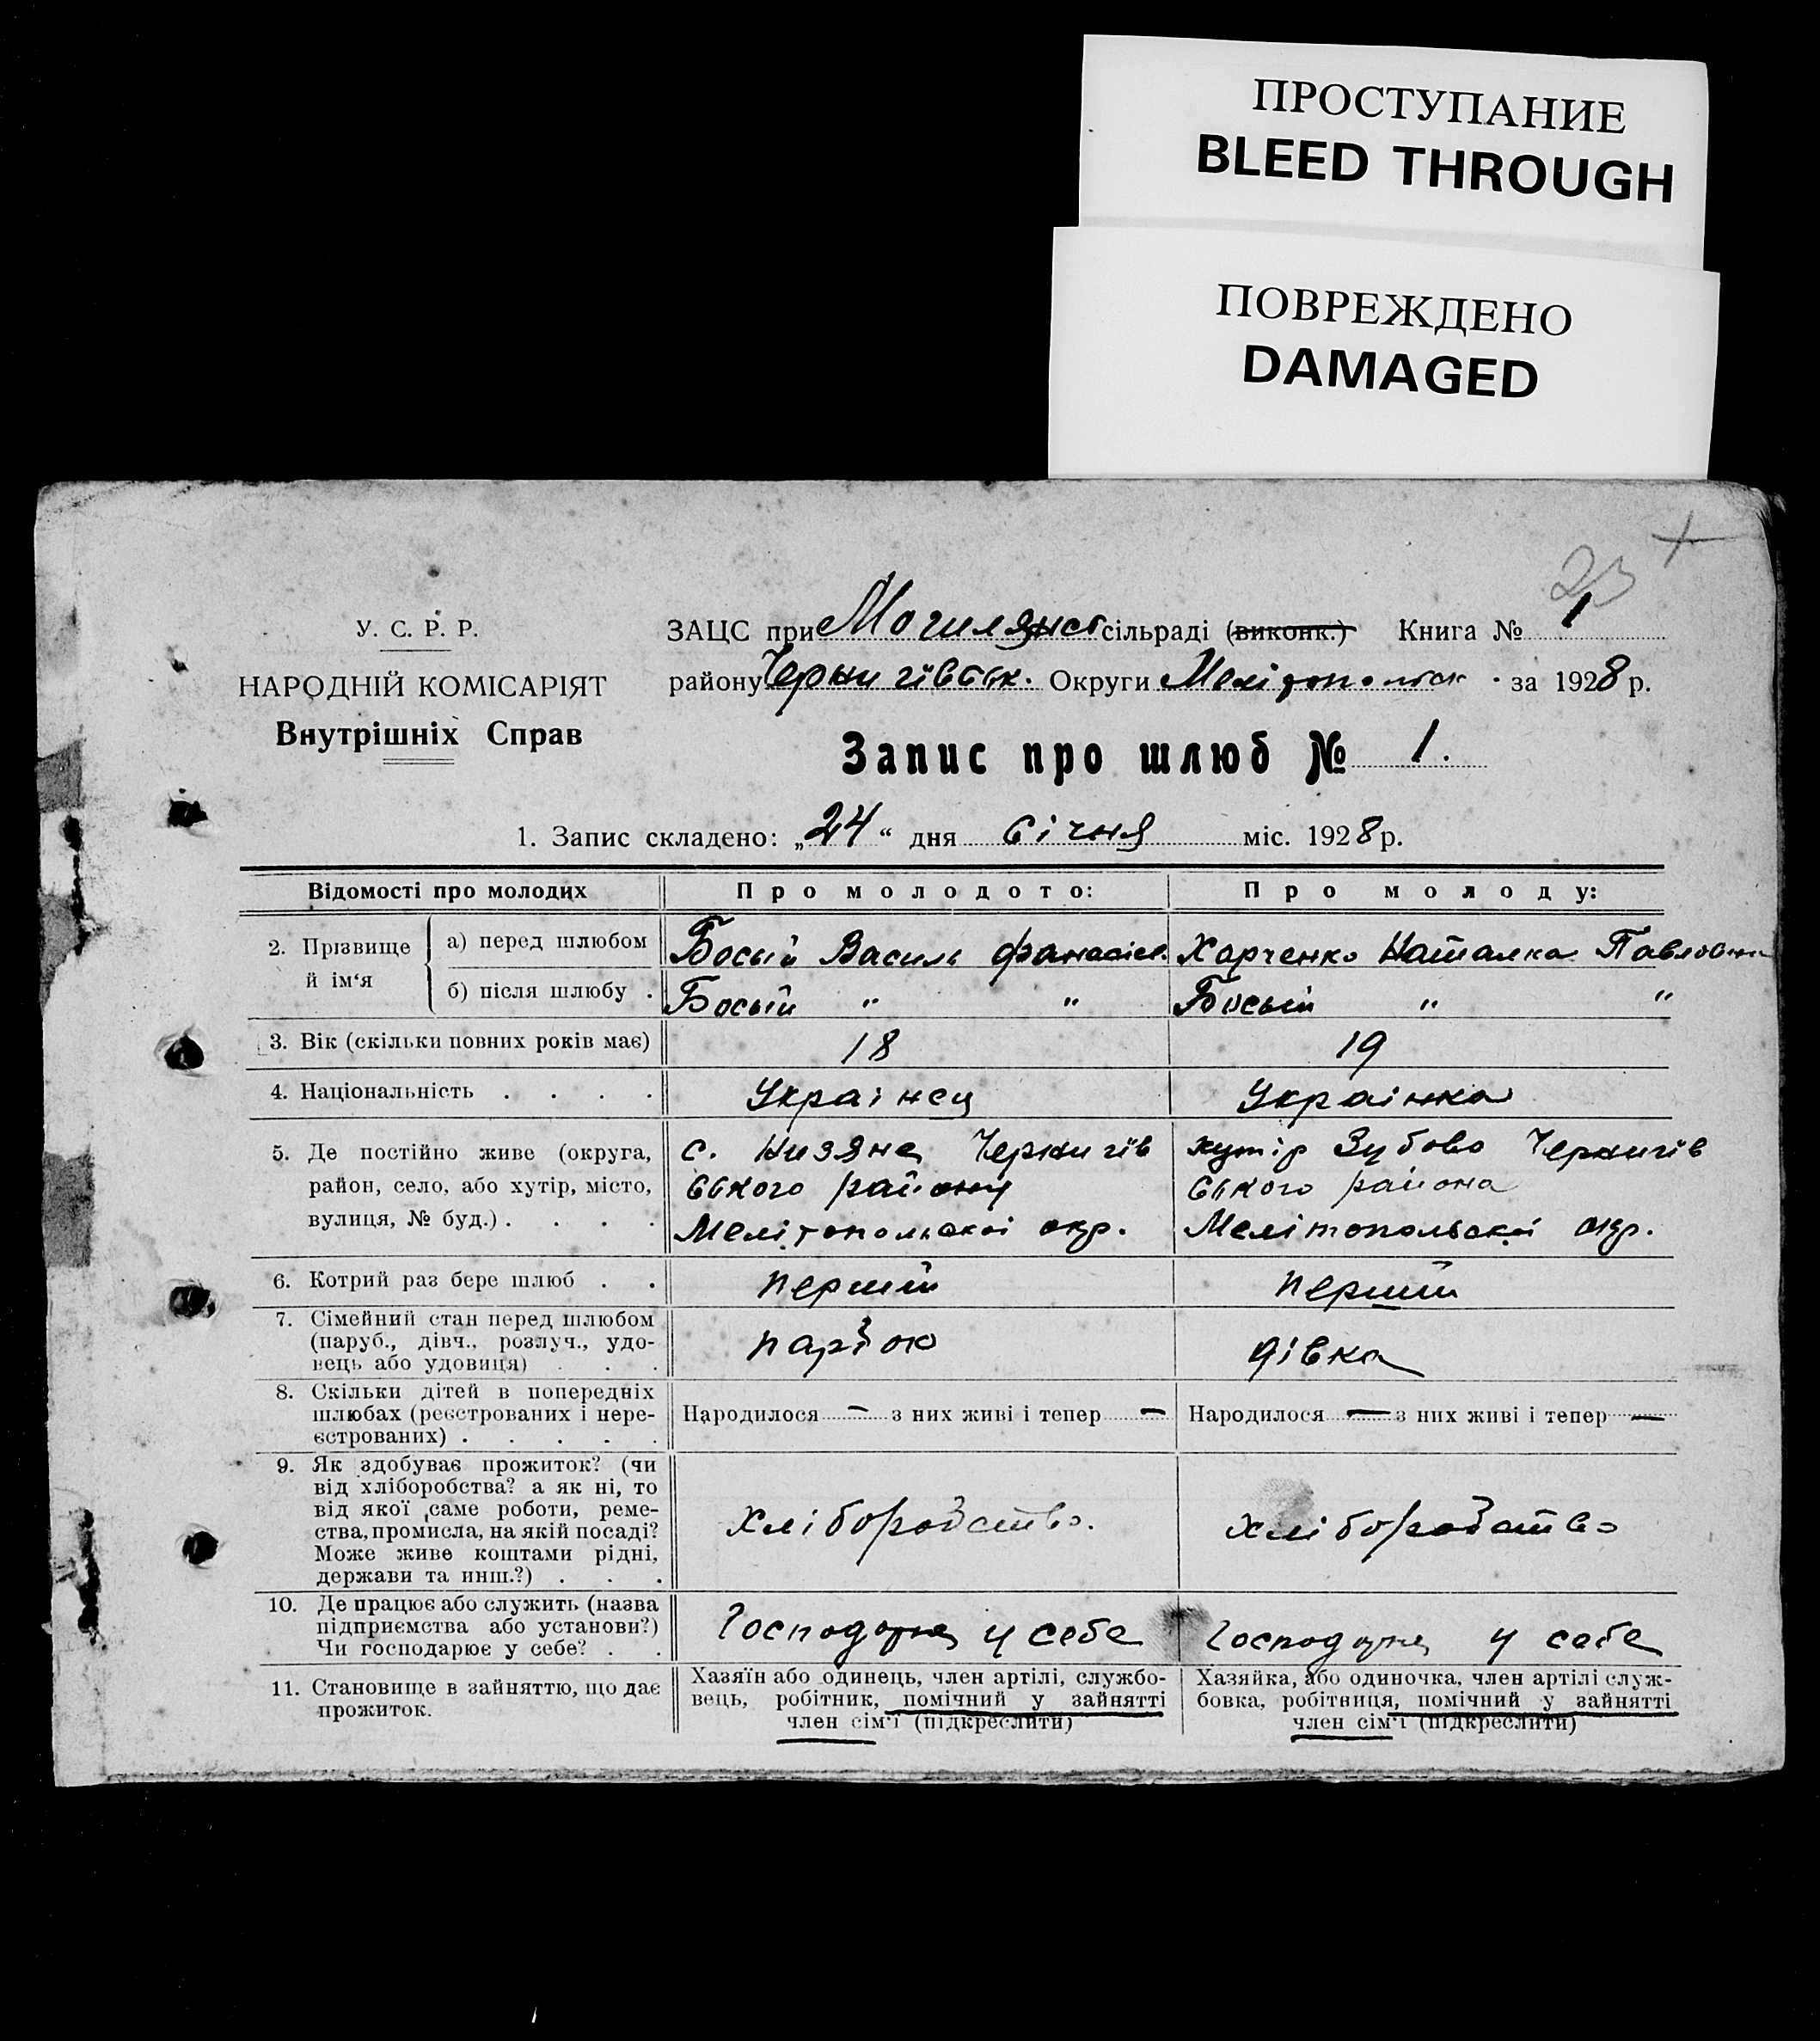 ПРОСТУПАНИЕ
BLEED THROUGH
ПОВРЕЖДЕНО
DAMAGED
23
У. С. Р. Р.
НАРОДНІЙ КОМІСАРІЯТ
Внутрішніх Справ
ЗАЦС при Могилянс сільраді (виконк.) Книга № 1
району Чернигівськ. Округи Мелітопольск. за 1928 р.
Запис про шлюб № 1.
1. Запис складено: „24“ дня січня міс. 1928 р.
Відомості про молодих
Про молодого:
Про молоду:
2. Прізвище й ім‘я
а) перед шлюбом
Босый Василь Фанасієв.
Харченко Наталка Павловна
б) після шлюбу .
Босый " "
Босый " "
3. Вік (скільки повних років має)
18
19
4. Національність . . . .
Українец
Українка
5. Де постійно живе (округа,
район, село, або хутір, місто,
вулиця, № буд.) . . . .
с. Низяне Чернигів
ського району
Мелітопольскоі окр.
хутір Зубово Чернигів
ського района
Мелітопольскоі окр.
6. Котрий раз бере шлюб . .
перший
перший
7. Сімейний стан перед шлюбом
(паруб., дівч., розлуч., удо-
вець або удовиця) . . .
дівка
8. Скільки дітей в попередніх
шлюбах (реєстрованих і нере-
єстрованих) . . . . .
Народилося — з них живі і тепер —
Народилося — з них живі і тепер —
9. Як здобуває прожиток? (чи
від хліборобства? а як ні, то
від якої саме роботи, реме-
ства, промисла, на якій посаді?
Може живе коштами рідні,
держави та инш.?) . . .
Хліборобство.
хліборобство
10. Де працює або служить (назва
підприємства або установи?)
Чи господарює у себе? . .
у себе
у себе
11. Становище в зайняттю, що дає
прожиток.
Хазяїн або одинець, член артілі, службо-
вець, робітник, помічний у зайнятті
член сім‘ї (підкреслити)
Хазяйка, або одиночка, член артілі служ-
бовка, робітниця, помічний у зайнятті
член сім‘ї (підкреслити)